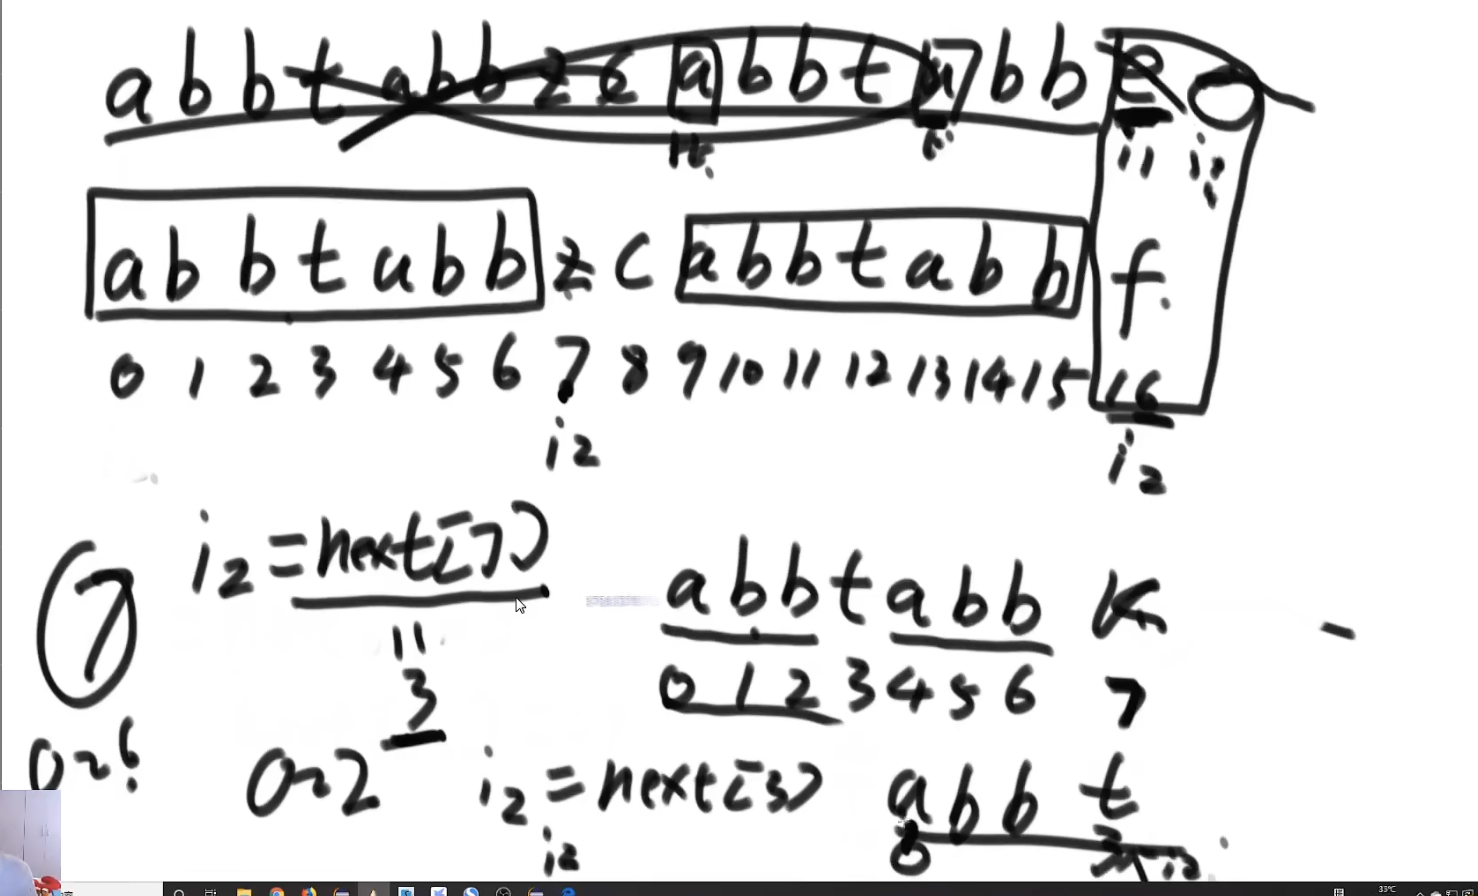 a b b t a b b z c a b b t a b b e
i1 i1
a b b t a b b z c a b b t a b b f
0 1 2 3 4 5 6 7 8 9 10 11 12 13 14 15 16
i2 i2
7 i2 = next[7] a b b t a b b k
3 0 1 2 3 4 5 6 7
0~6 0~2 i2 = next[3] a b b t
i2 0 3 i2
33°C